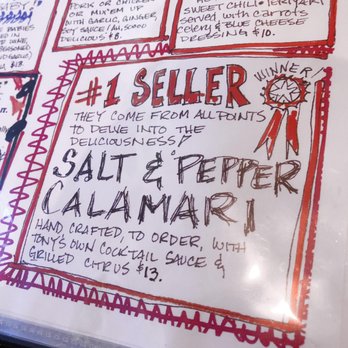 PORK OR CHICKEN
OR MIX'EM UP
WITH GARLIC, GINGER,
SOY SAUCE! AH, SOOOO
DELICIOUS
SWEET CHILI
TERIYAKI
served with carrots
celery & BLUE CHEESE
DRESSING $10.
#1 SELLER
WINNER!
THEY COME FROM ALL POINTS
TO DELVE INTO THE
DELICIOUSNESS!
SALT & PEPPER
CALAMARI
HAND CRAFTED, TO ORDER, WITH
TONY'S OWN COCKTAIL SAUCE &
GRILLED CITRUS $13.